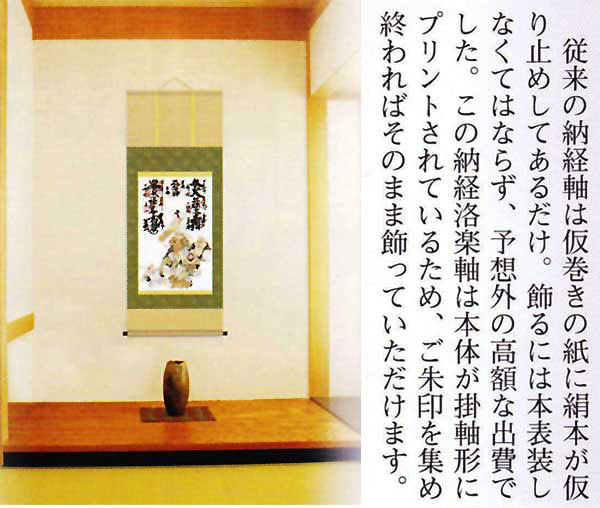 従来の納経軸は仮巻きの紙に絹本が仮
り止めしてあるだけ。飾るには本表装し
なくてはならず、予想外の高額な出費で
した。この納経洛楽軸は本体が掛軸形に
プリントされているため、ご朱印を集め
終わればそのまま飾っていただけます。